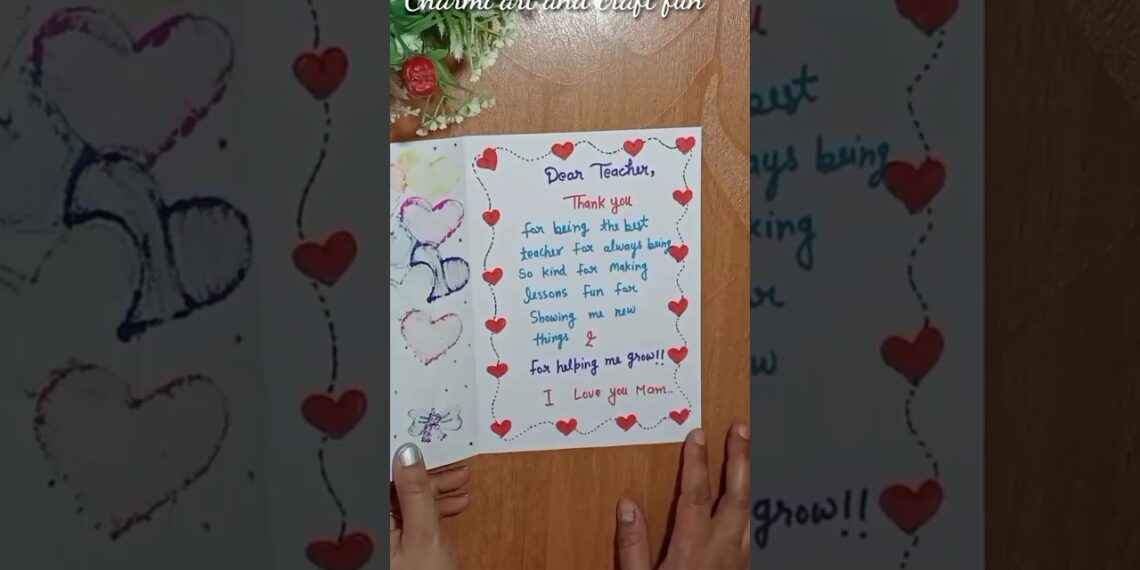 Charmi art and craft fun
Dear Teacher,
Thank you
for being the best
teacher for always being
So kind for making
lessons fun for
Showing me new
things &
for helping me grow!!
I Love you Mam..
best
ways being
king
grow!!